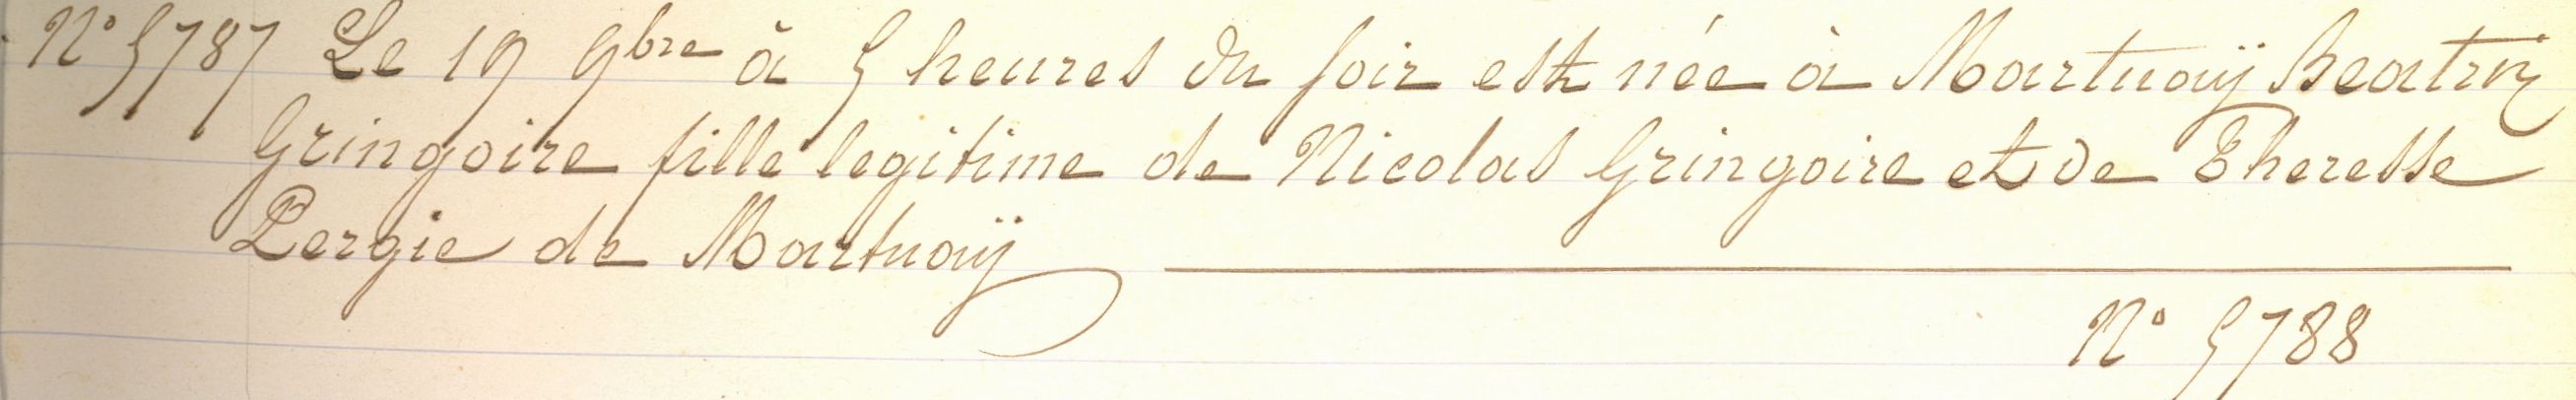 N° 5787 Le 19 9bre à 5 heures du soir est née à Martuaÿ Beatrix
Gringoire fille legitime de Nicolas Gringoire et de Theresse
Pergie de Martuaÿ
N° 5788